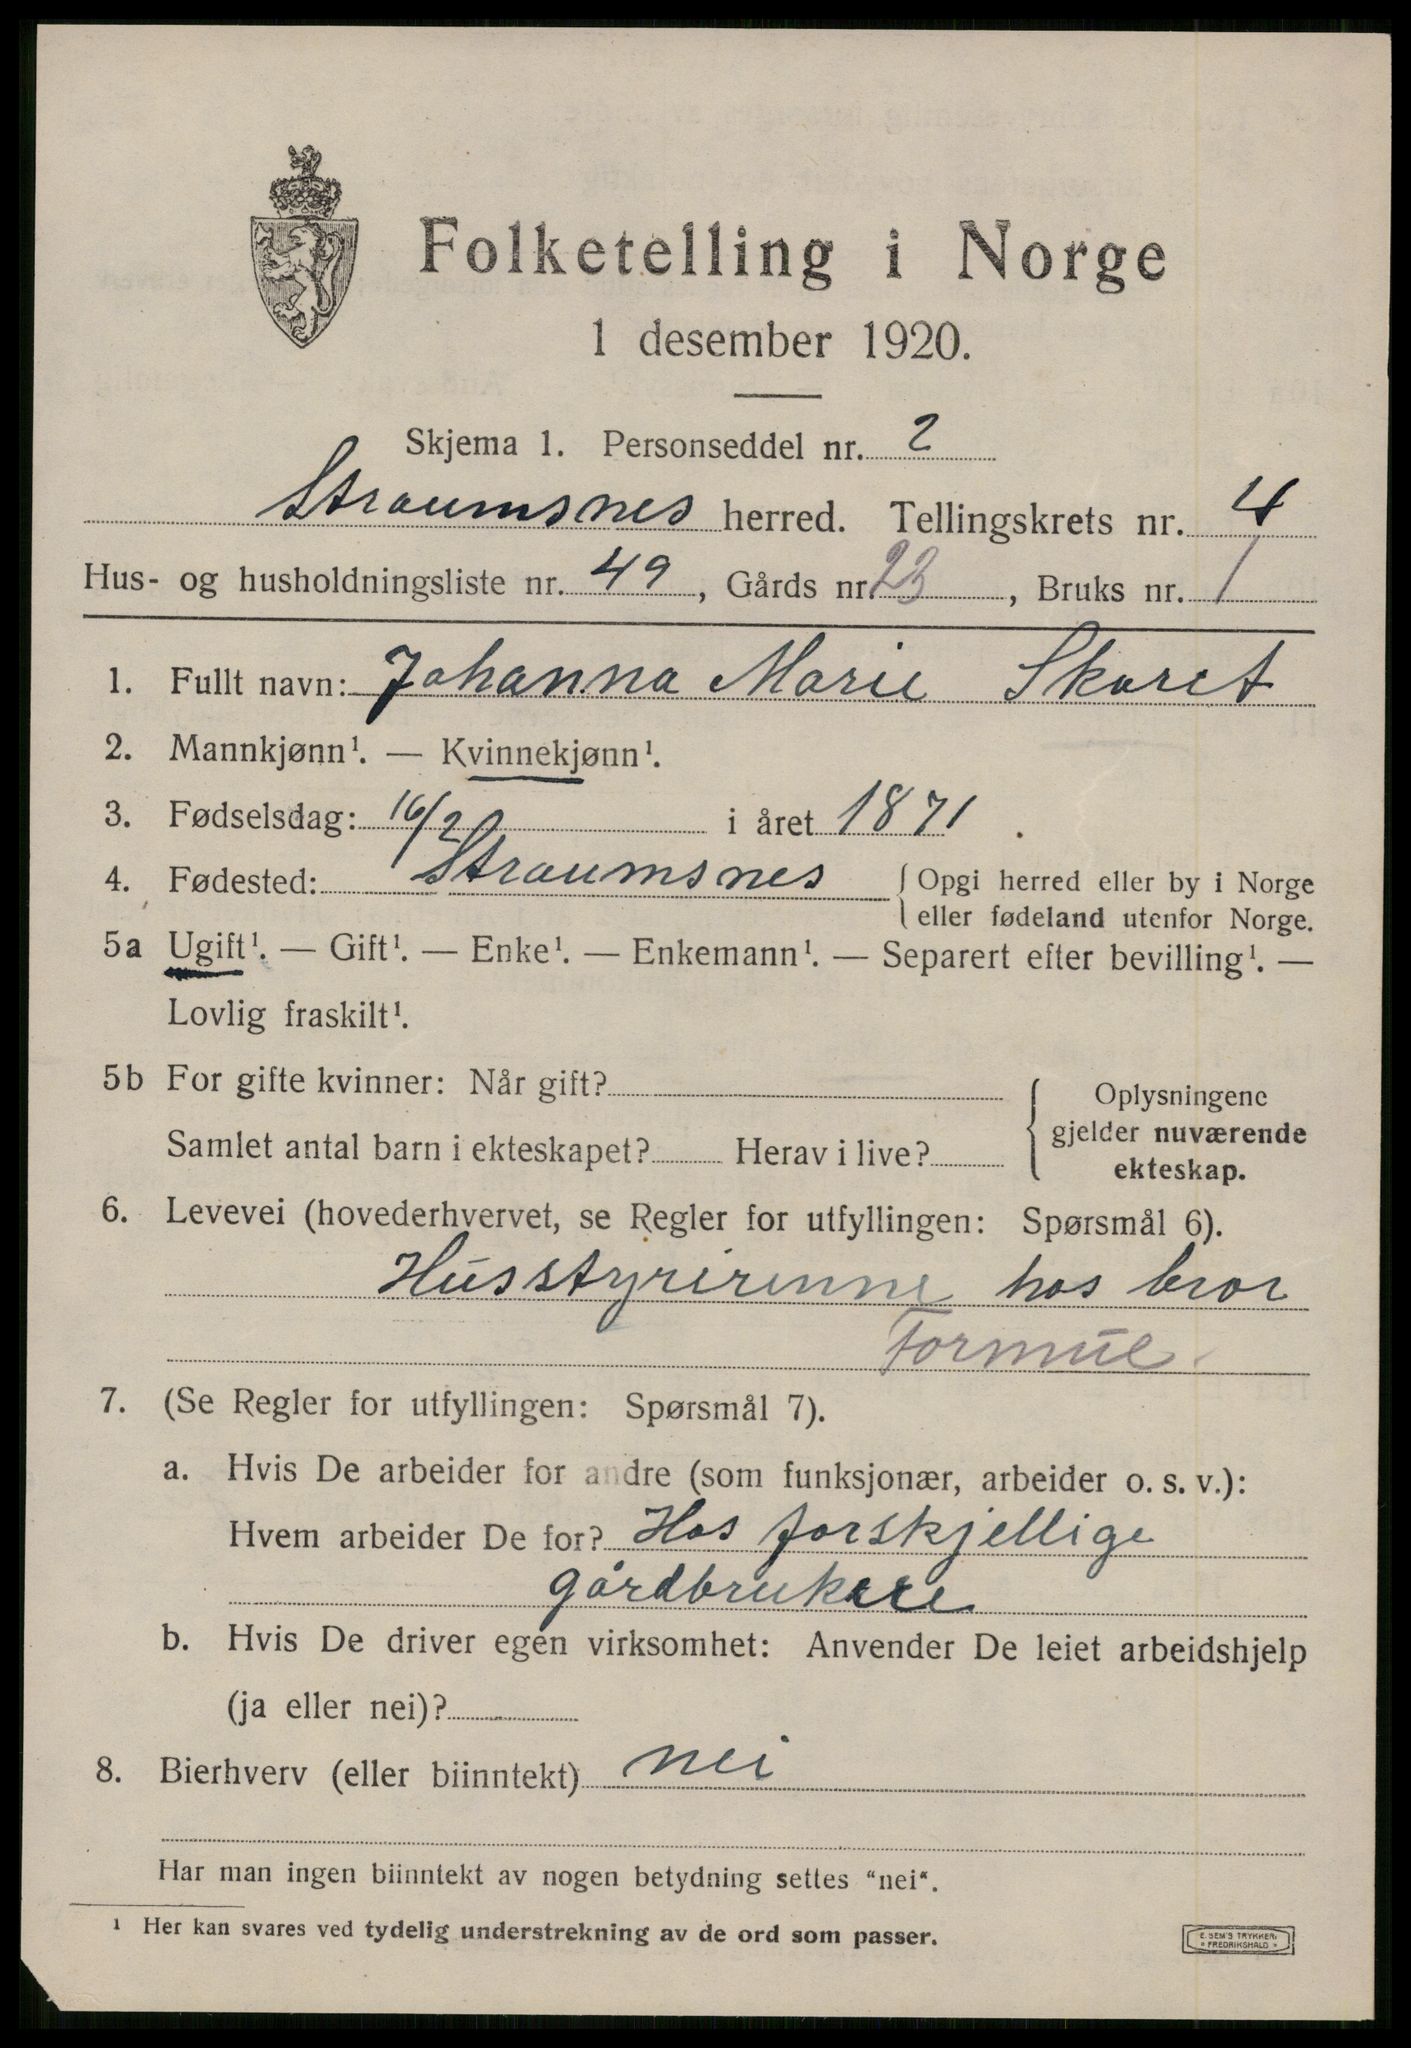 Folketelling i Norge
1 desember 1920.
Skjema 1. Personseddel nr. 2
Straumsnes herred. Tellingskrets nr. 4
Hus- og husholdningsliste nr. 49, Gårds nr. 23, Bruks nr. 1
1. Fullt navn: Johanna Marie Skaret
2. Mannkjønn¹. — Kvinnekjønn¹.
3. Fødselsdag: 16/2 i året 1871.
4. Fødested: Straumsnes { Opgi herred eller by i Norge
eller fødeland utenfor Norge.
5a Ugift¹. — Gift¹. — Enke¹. — Enkemann¹. — Separert efter bevilling¹. —
Lovlig fraskilt¹.
5b For gifte kvinner: Når gift?
Samlet antal barn i ekteskapet? Herav i live?
{ Oplysningene
gjelder nuværende
ekteskap.
6. Levevei (hovederhvervet, se Regler for utfyllingen: Spørsmål 6).
Husstyrirenne hos bror
Formue
7. (Se Regler for utfyllingen: Spørsmål 7).
a. Hvis De arbeider for andre (som funksjonær, arbeider o. s. v.):
Hvem arbeider De for? Hos forskjellige
gårdbrukere
b. Hvis De driver egen virksomhet: Anvender De leiet arbeidshjelp
(ja eller nei)?
8. Bierhverv (eller biinntekt) nei
Har man ingen biinntekt av nogen betydning settes "nei".
¹ Her kan svares ved tydelig understrekning av de ord som passer.
E. SEM'S TRYKKERI
FREDRIKSHALD